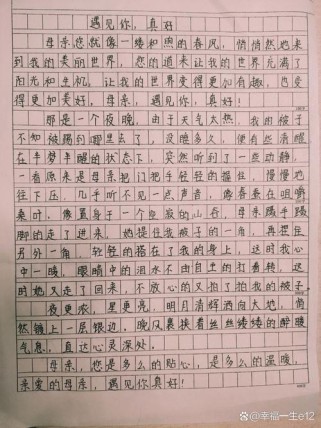 遇见你，真好
母亲您就像一缕和煦的春风，悄悄然地来
到我的美丽世界，您的道来让我的世界充满了
阳光和生机，让我的世界变得更加有趣，也变
得更加美好。母亲，遇见你，真好！
那是一个夜晚，由于天气太热，我的被子
不知被踢到哪里去了，没睡多久，便有些清醒
在半梦半醒的状态下，突然听到了一些动静，
一看原来是母亲把门把手轻轻的握住，慢慢地
往下压，几乎听不见一点声音，像春蚕在咀嚼
桑叶，像置身于一个空寂的山谷，母亲蹑手蹑
脚的走了进来，她捏住我被子的一角，再捏住
另外一角，轻轻的搭在了我的身上，这时我心
中一暖，眼睛中的泪水不由自主的打着转，这
时她又走了回来，不放心的又拍了拍我的被子。
夜更浓，星更亮，明月清辉洒向大地，悄
然镀上一层银边。晚风裹挟着丝丝缕缕的醉暖
气息，直达心灵深处。
母亲，您是多么的贴心，是多么的温暖，
亲爱的母亲，遇见你真好！
@幸福一生e12